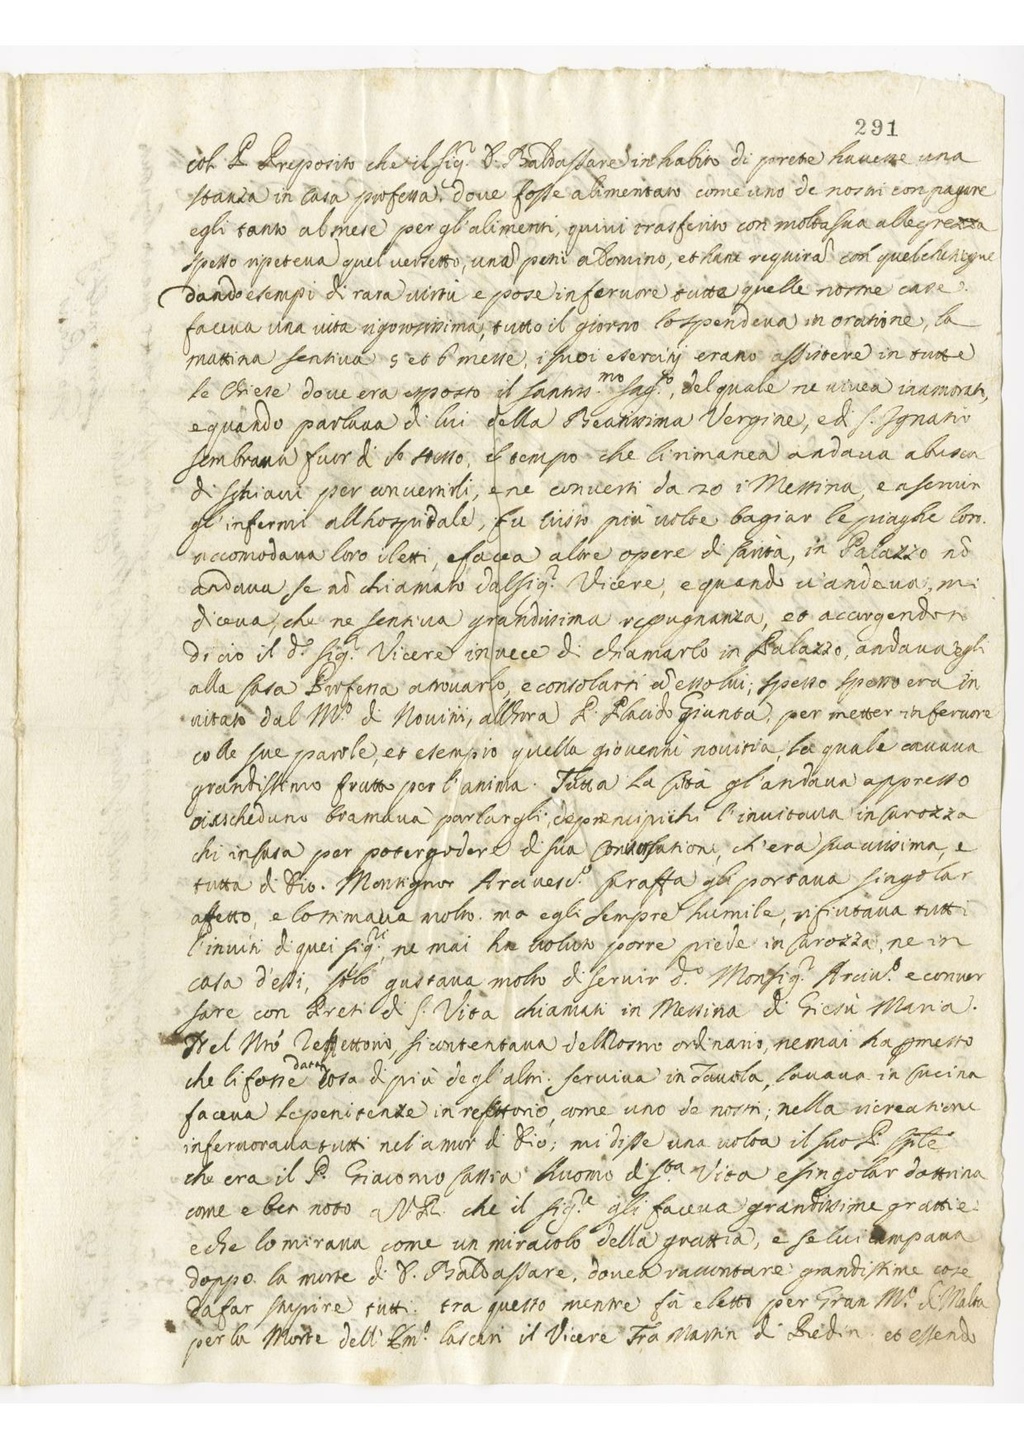 291
col P. Preposito che il Sig.r D. Baldassare in habito di prete havesse una
stanza in Casa professa, dove fosse alimentato come uno de nostri con pagare
egli tanto al mese per gl'alimenti, quivi trasferito con molta sua allegrezza
spesso ripeteva quel versetto, unam petii a Domino, et hanc requiram con quel che segue
dando esempi di rara virtù e pose in fervore tutte quelle nostre case.
faceva una vita rigorosissima, tutto il giorno lo spendeva in oratione, la
mattina sentiva 5 et 6 messe, i suoi esercitij erano assistere in tutte
le Chiese dove era esposto il santiss.mo Sag.to, del quale ne vivea inamorato,
e quando parlava di lui della Beatissima Vergine, e di S. Ignatio
sembrava fuor di se stesso, il tempo che li rimanea andava a busca
di schiavi per convertirli, e ne convertì da 20 i Messina, e a servir
gl'infermi all'hospidale, fu visto più volte bagiar le piaghe loro.
accomodava loro i letti, e facea altre opere di carità, in Palazzo nõ
andava, se nõ chiamato dal Sig.r Vicere, e quando v'andava, mi
diceva, che ne sentiva grandissima repugnanza, et accorgendosi
di cio il d.o Sig.r Vicere in vece di chiamarlo in Palazzo, andava egli
alla Casa Professa a trovarlo, e consolarsi con esso lui; spesso spesso era in
vitato dal M.ro di Novitii, all'hora P. Placido Giunta, per metter in fervore
colle sue parole, et esempio quella gioventù novitia, la quale cavava
grandissimo frutto per l'anima. Tutta la Città gl'andava appresso
ciascheduno bramava parlargli, de principi chi l'invitava in Carozza
chi in Casa per poter godere di sua Conversatione, ch'era suavissima, e
tutta di Dio. Monsignor Arcivesc.o Caraffa gli portava singolar
affetto, e lo stimava molto. ma egli sempre humile, rifiutava tutti
l'inviti di quei Sig.ri, ne mai ha voluto porre piede in Carozza, ne in
casa d'essi, solo gustava molto di servir d.o Monsig.r Arciv.o e conver
sare con Preti di S. Vita chiamati in Messina di Giesù Maria.
Nel Nro Refettorio, si contentava del Nostro ordinario, ne mai ha pmesso
che li fosse data cosa di più degl'altri. serviva in Tavola, lavava in Cucina
faceva le penitenze in refettorio, come uno de nostri; nella ricreatione
infervorava tutti nel'amor di Dio; mi disse una volta il suo P. Sple
che era il P. Giacomo Huomo di sta Vita e singolar dottrina
come e ben noto a V.R. che il Sig.re gli faceva grandissime grattie
e che lo mirava come un miracolo della grattia, e se lui campava
doppo la morte di D. Baldassare, dovea raccontare grandissime cose
da far stupire tutti. tra questo mentre fù eletto per Gran M.ro di Malta
per la Morte dell'Em.o Lascari il Vicere Fra Martin di Redin. et essendo